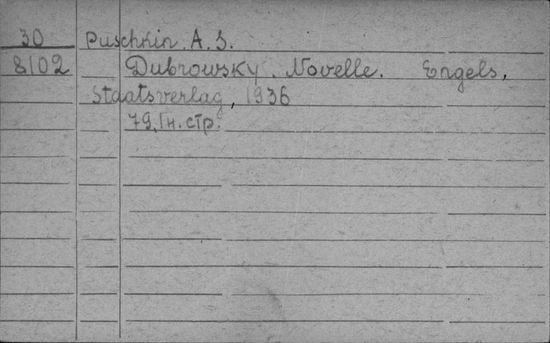 30 Puschkin. A. S.
8102 Dubrowsky. Novelle. Engels,
Staatsverlag, 1936
79, Iн. стр.